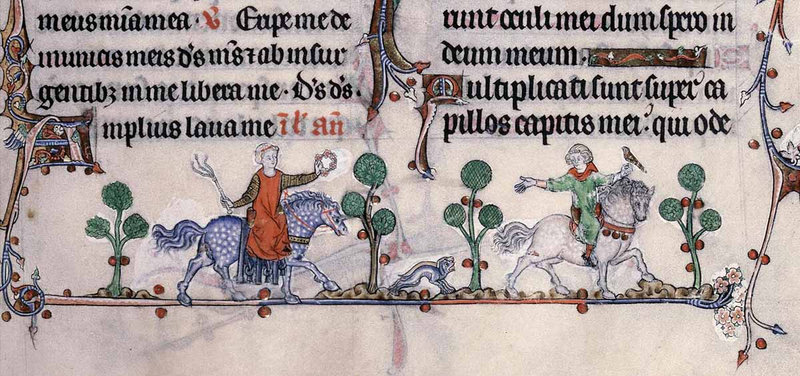 meus mīa mea · ℣ Eripe me de
inimicis meis d's m̄s ⁊ ab insur
gentibꝫ in me libera me · D's d's ·
Amplius laua me
runt oculi mei dum spero in
deum meum ·
Multiplicati sunt super ca
pillos capitis mei · qui ode